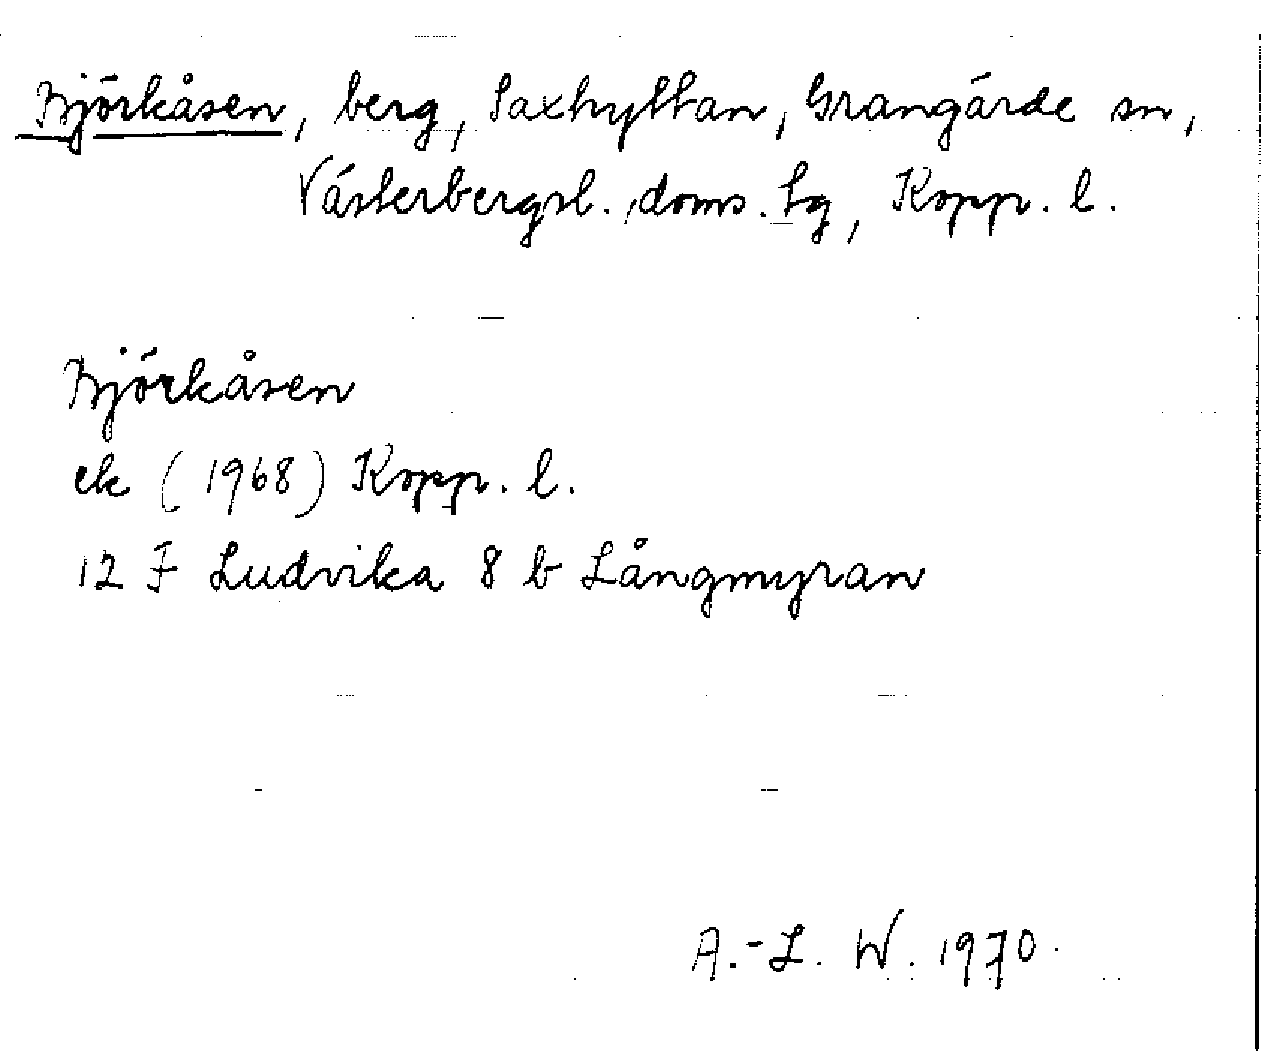 Björkåsen, berg, Saxhyttan, Grangärde sn,
Västerbergsl. doms. tg, Kopp. l.
Björkåsen
ek (1968) Kopp. l.
12 F Ludvika 8 b Långmyran
A.-L. W. 1970.